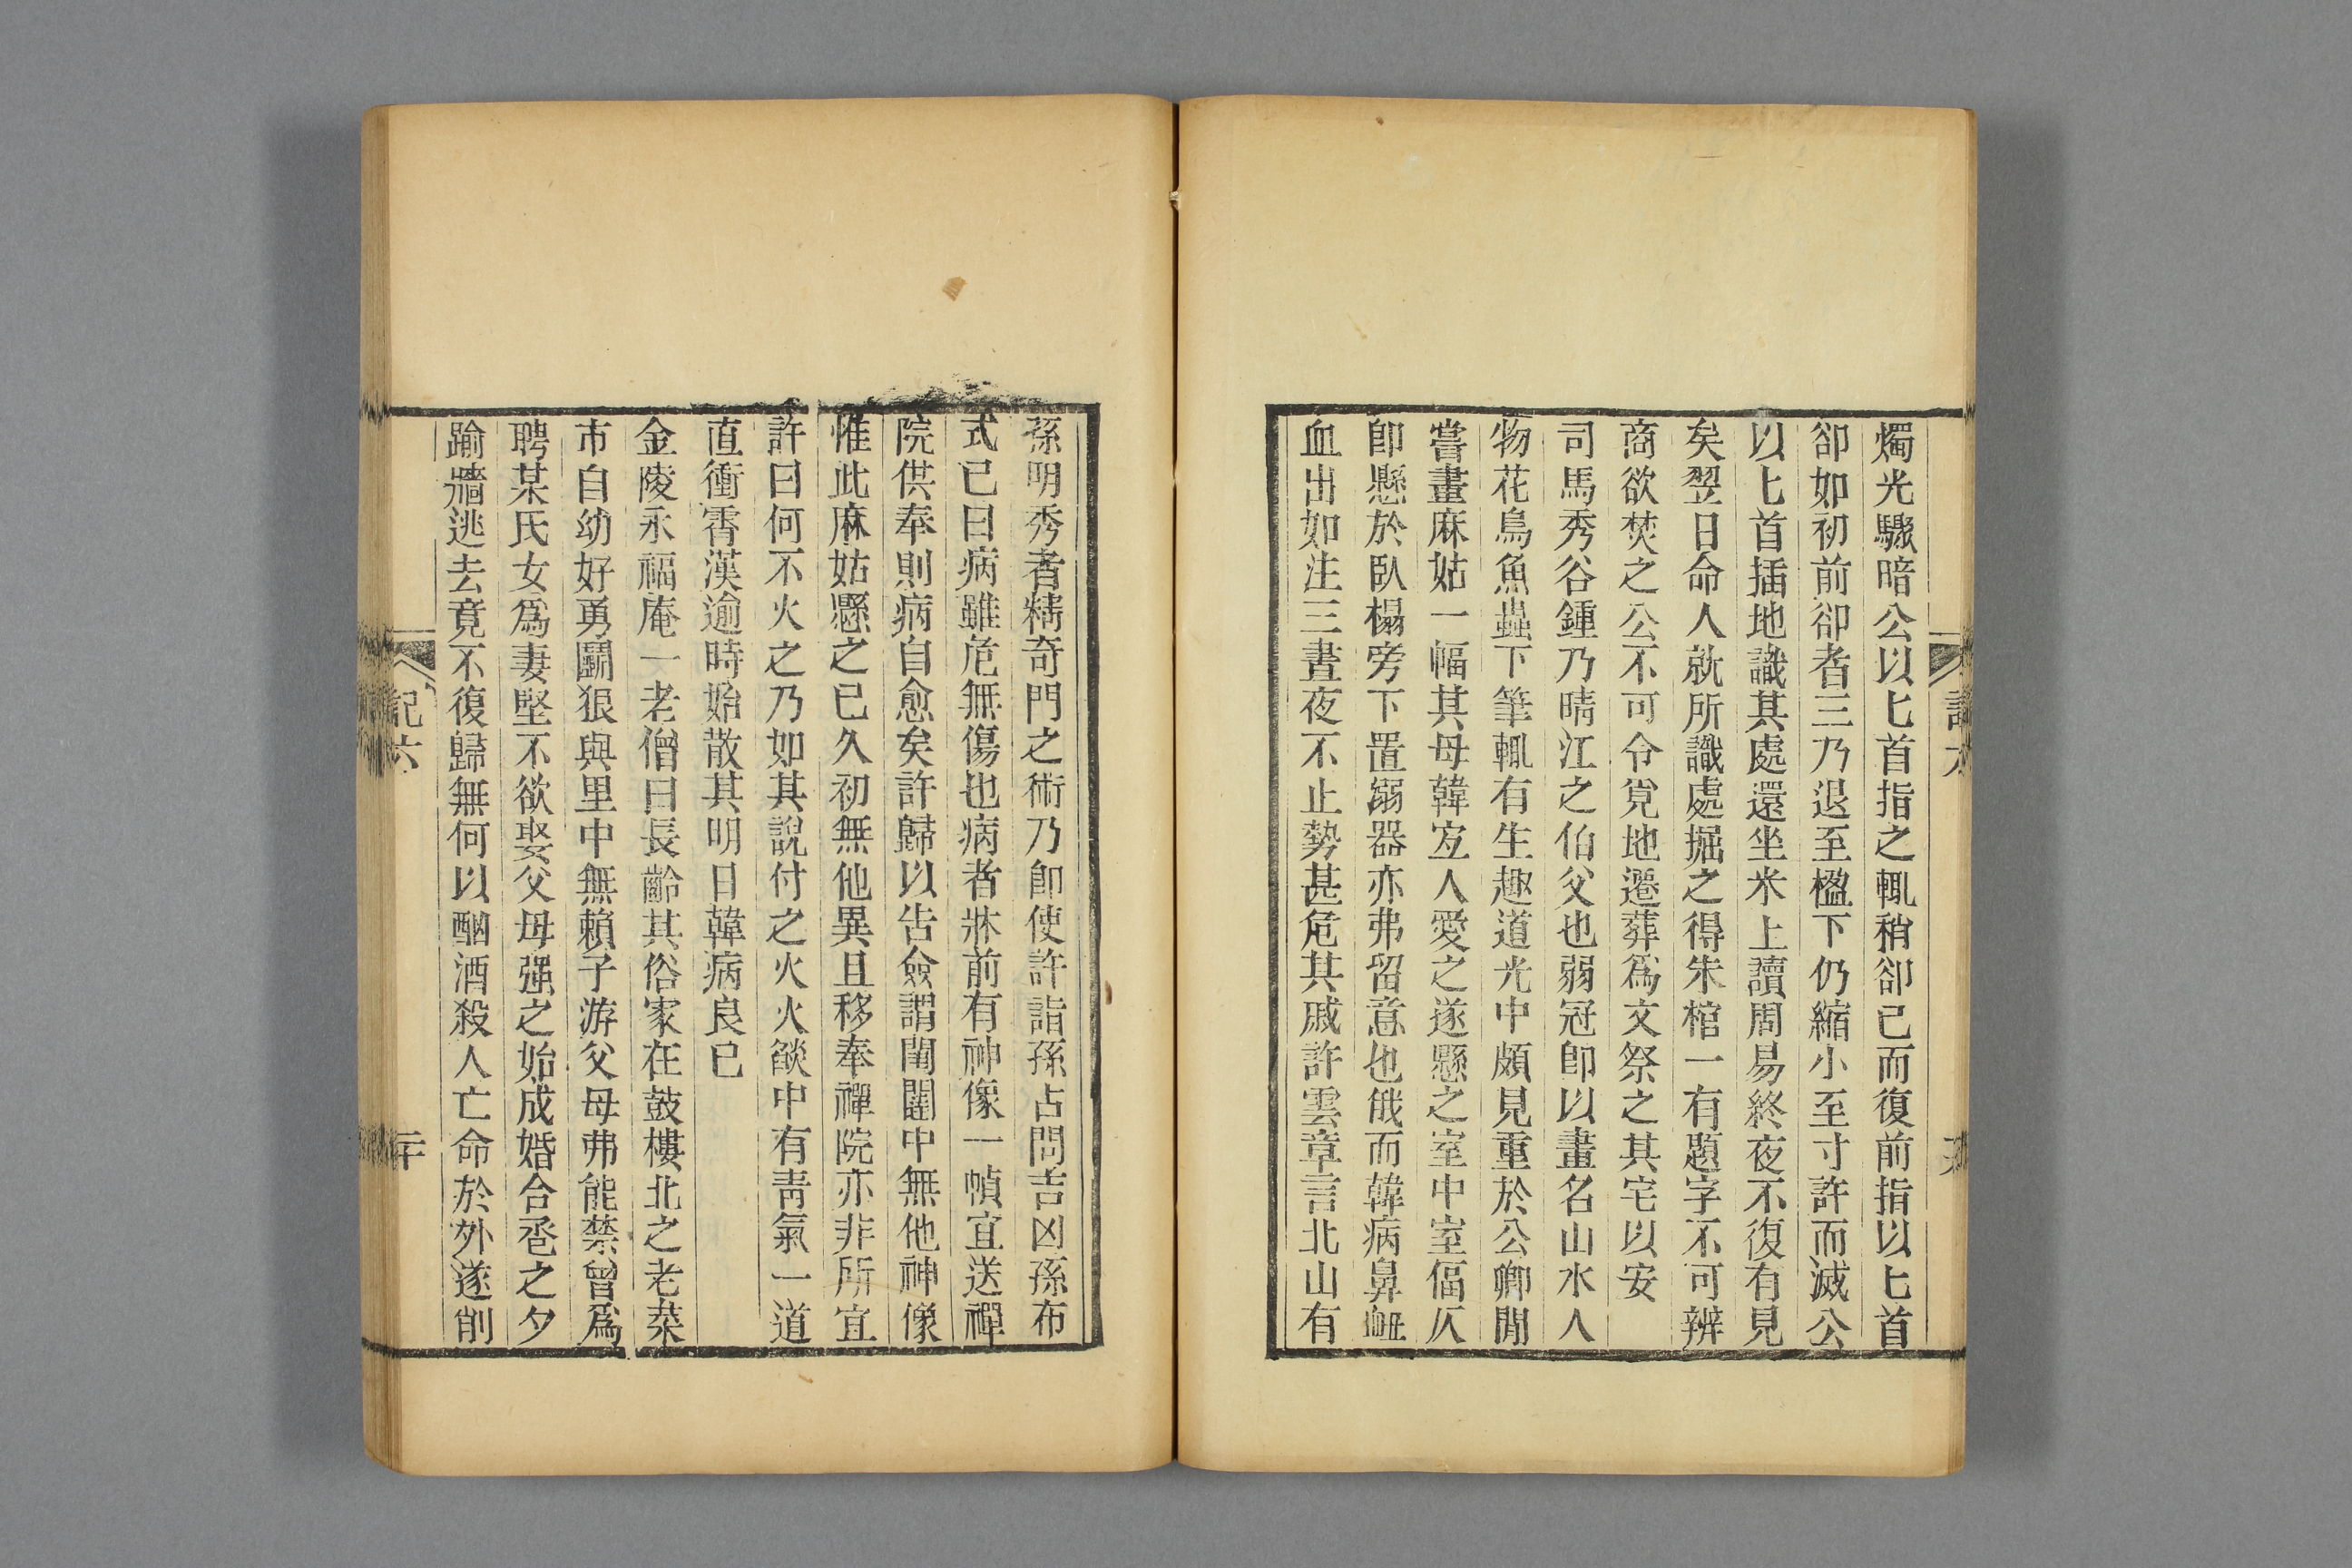 燭光驟暗公以匕首指之輒稍卻已而復前指以匕首
卻如初前卻者三乃退至楹下仍縮小至寸許而滅公
以匕首插地識其處還坐米上讀周易終夜不復有見
矣翌日命人就所識處掘之得朱棺一有題字不可辨
商欲焚之公不可令覓地遷葬爲文祭之其宅以安
司馬秀谷鍾乃晴江之伯父也弱冠卽以畫名山水人
物花鳥魚蟲下筆輒有生趣道光中頗見重於公卿閒
嘗畫麻姑一幅其母韓宐人愛之遂懸之室中室偪仄
卽懸於臥榻旁下置溺器亦弗留意也俄而韓病鼻衄
血出如注三晝夜不止勢甚危其戚許雲章言北山有
孫明秀者精奇門之術乃卽使許詣孫占問吉凶孫布
式已曰病雖危無傷也病者牀前有神像一幀宜送禪
院供奉則病自愈矣許歸以告僉謂閨闥中無他神像
惟此麻姑懸之已久初無他異且移奉禪院亦非所宜
許曰何不火之乃如其說付之火火燄中有靑氣一道
直衝霄漢逾時始散其明日韓病良已
金陵永福庵一老僧曰長齡其俗家在鼓樓北之老菜
市自幼好勇鬭狠與里中無賴子游父母弗能禁曾爲
聘某氏女爲妻堅不欲娶父母强之始成婚合巹之夕
踰牆逃去竟不復歸無何以酗酒殺人亡命於外遂削
記六
二十